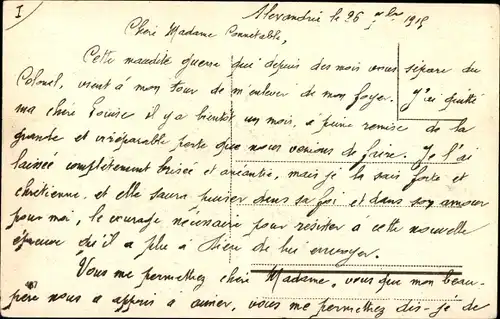 I
Alexandrie le 26 1915
Chère Madame Connétable,
Cette maudite guerre qui depuis des mois vous sépare du
Colonel, vient à mon tour de m'enlever de mon foyer. J'ai quitté
ma chère Louise il y a bientôt un mois, à peine remise de la
grande et irréparable perte que nous venions de faire. Je l'ai
laissée complètement brisée et anéantie, mais je la sais forte et
chrétienne, et elle saura puiser dans sa foi et dans son amour
pour moi, le courage nécessaire pour résister à cette nouvelle
épreuve qu'il a plu à Dieu de lui envoyer.
Vous me permettrez chère Madame, vous que mon beau-
père nous a appris à aimer, vous me permettrez dis-je de